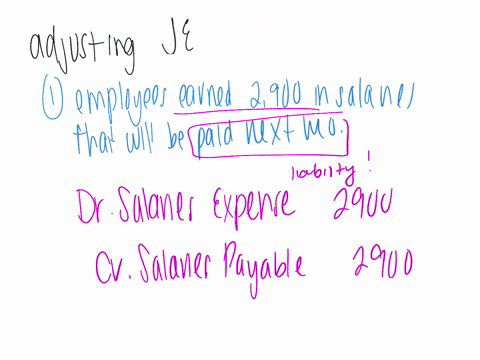 adjusting JE
① employees earned 2,900 in salaries
that will be paid next mo.
liability!
Dr. Salaries Expense 2900
Cr. Salaries Payable 2900